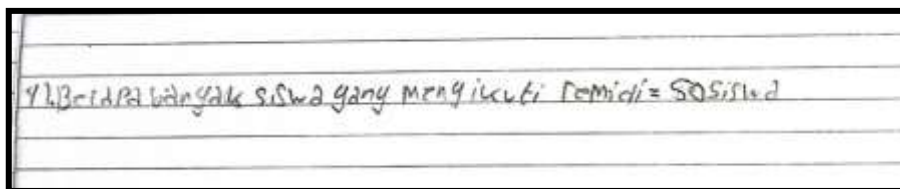 4).Berapa banyak siswa yang mengikuti remidi = 50 siswa